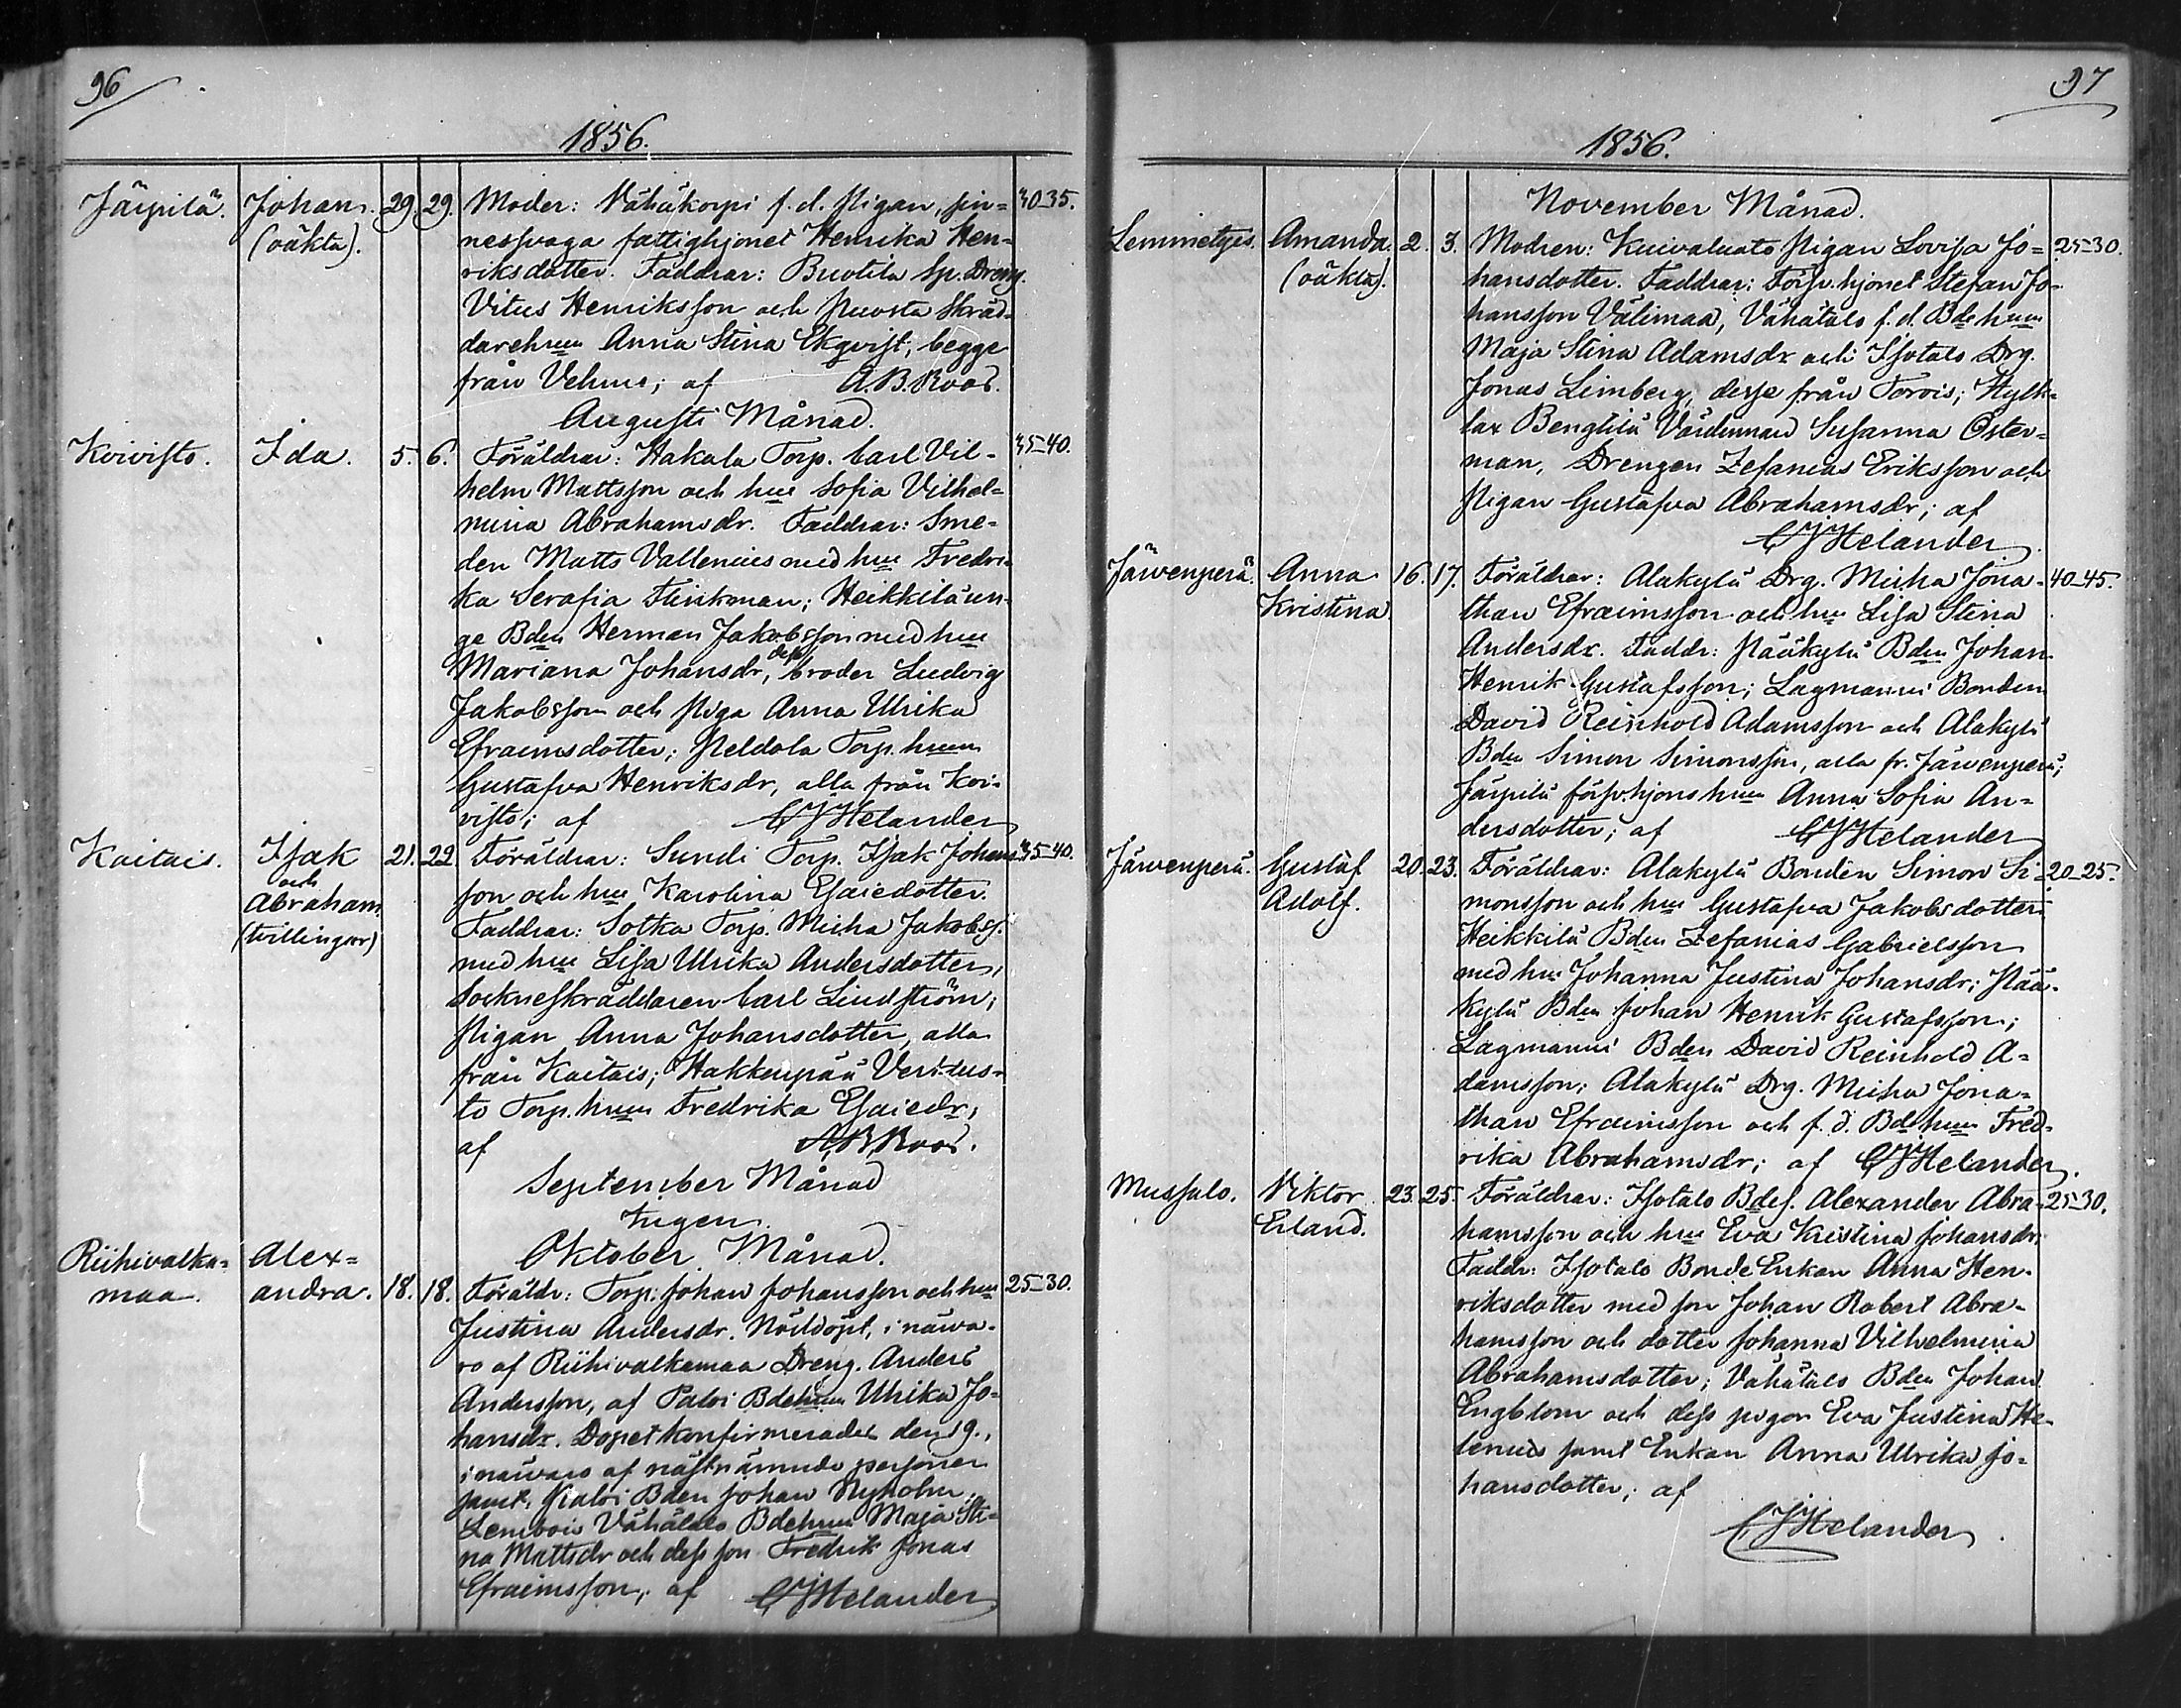 96
1856.
Järppilä. Johan. 29. 29. Moder: Vähäkorpi f.d. Pigan, sin= 40-35.
(oäkta). nessvaga fattighjonet Henrika Hen=
riksdotter. Faddrar: Buotila Sp. Dreng.
Vitus Henriksson och Skräd=
darehuu Anna Stina Ekqvist, begge
från Vehmo; af A.B. Roos.
Augusti Månad.
Koivisto. Ida. 5. 6. Föräldrar: Hakala Torp. Carl Vil= 45-40.
helm Mattsson och huu Sofia Vilhel=
mina Abrahamsdr. Faddrar: Sme=
den Matts Vallenius med huu Fredri=
ka Serafia Flinkman; Heikkilä un=
ge Bden Herman Jakobsson med huu
Mariana Johansdr, dess broder Ludvig
Jakobsson och Piga Anna Ulrika
Efraimsdotter; Peldola Torp. huun
Gustafva Henriksdr, alla från Koi=
visto; af CJHelander
Kaitais. Isak 21. 22. Föräldrar: Sundi Torp. Isak Johans= 35-40.
och son och huu Karolina Esaiedotter.
Abraham Faddrar: Sotka Torp. Micha Jakobss.
(tvillingar) med huu Lisa Ulrika Andersdotter,
Sockneskräddaren Carl Lindström,
Pigan Anna Johansdotter, alla
från Kaitais; Hakkenpää Vertus=
to Torp. huun Fredrika Esaiedr,
af A.B. Roos.
September Månad
Ingen.
Oktober Månad.
Riihivalka= Alex=
maa. andra. 18. 18. Föräldr: Torp. Johan Johansson och huu 25-30.
Justina Andersdr. Nöddöpt, i närva=
ro af Riihivalkamaa Dreng. Anders
Andersson, af Paloi Bdehuun Ulrika Jo=
hansdr. Dopet konfirmerades den 19.,
i närvaro af nästnämnde personer
samt, Bden Johan Nyholm,
Lembois Vähätalo Bdehuun Maja Sti=
na Mattsdr och dess son Fredrik Jonas
Efraimsson; af CJHelander
97
1856.
November Månad.
Lemmetyis. Amanda. 2. 3. Modren: Kuivaluato Pigan Lovisa Jo= 25-30.
(oäkta). hansdotter. Faddrar: Försv.hjonet Stefan Jo=
hansson Välimaa, Vähätalo f.d. Bdehuun
Maja Stina Adamsdr och Isotalo Drg.
Jonas Limberg, desse från Torois; Hylk=
lax Bengtilä Värdinnan Susanna Öster=
man, Drengen Zefanias Eriksson och
Pigan Gustafva Abrahamsdr; af
CJHelander.
Järvenperä. Anna 16. 17. Föräldrar: Alakylä Drg. Micha Jona= 40-45.
Kristina. than Efraimsson och huu Lisa Stina
Andersdr. Faddr: Pääkylä Bden Johan
Henrik Gustafsson; Lagmanni Bonden
David Reinhold Adamsson och Alakylä
Bden Simon Simonsson, alla fr. Järvenperä;
Järppilä försv.hjonshuun Anna Sofia An=
dersdotter; af CJHelander
Järvenperä. Gustaf 20. 23. Föräldrar: Alakylä Bonden Simon Si= 20-25.
Adolf. monsson och huu Gustafva Jakobsdotter:
Heikkilä Bden Zefanias Gabrielsson
med huu Johanna Justina Johansdr; Pää=
kylä Bden Johan Henrik Gustafsson;
Lagmanni Bden David Reinhold A=
damsson; Alakylä Drg. Micha Jona=
than Efraimsson och f.d. Bdehuun Fred=
rika Abrahamsdr; af CJHelander.
Mussalo. Viktor 23. 25. Föräldrar: Isotalo Bdes. Alexander Abra= 25-30.
Erland. hamsson och huu Eva Kristina Johansdr.
Faddr: Isotalo Bonde Enkan Anna Hen=
riksdotter med son Johan Robert Abra=
hamsson och dotter Johanna Vilhelmina
Abrahamsdotter; Vähätalo Bden Johan
Engblom och dess pigor Eva Justina He=
lenius samt Enkan Anna Ulrika Jo=
hansdotter; af
CJHelander